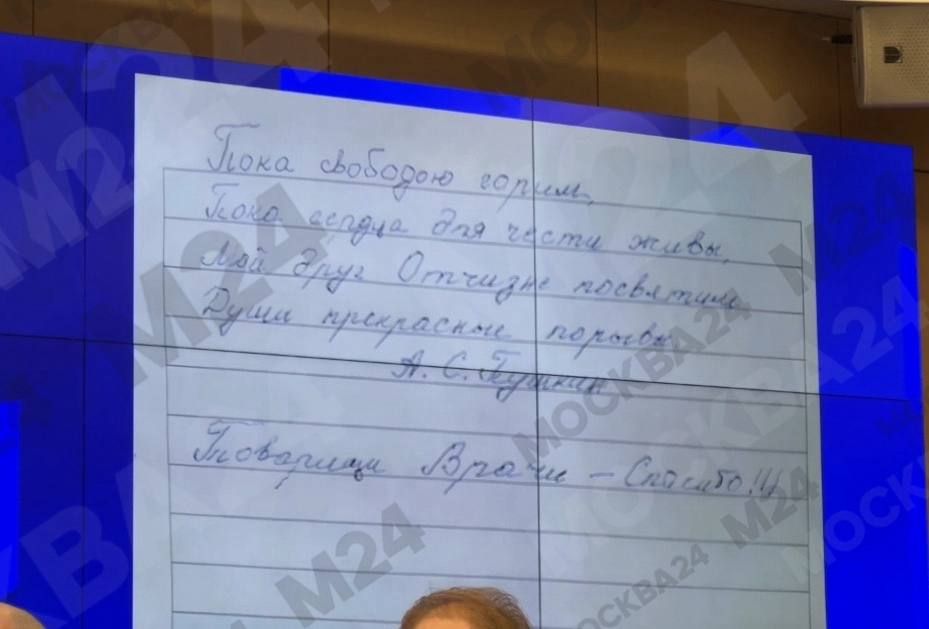 Пока свободою горим,
Пока сердца для чести живы,
Мой друг Отчизне посвятим
Души прекрасные порывы
А. С. Пушкин
Товарищи Врачи – Спасибо!!!
МОСКВА24
М24